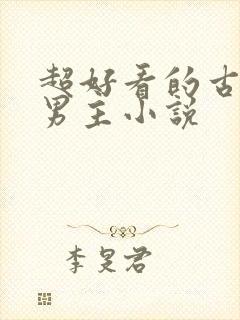 超好看的古
男主小说
李旻君